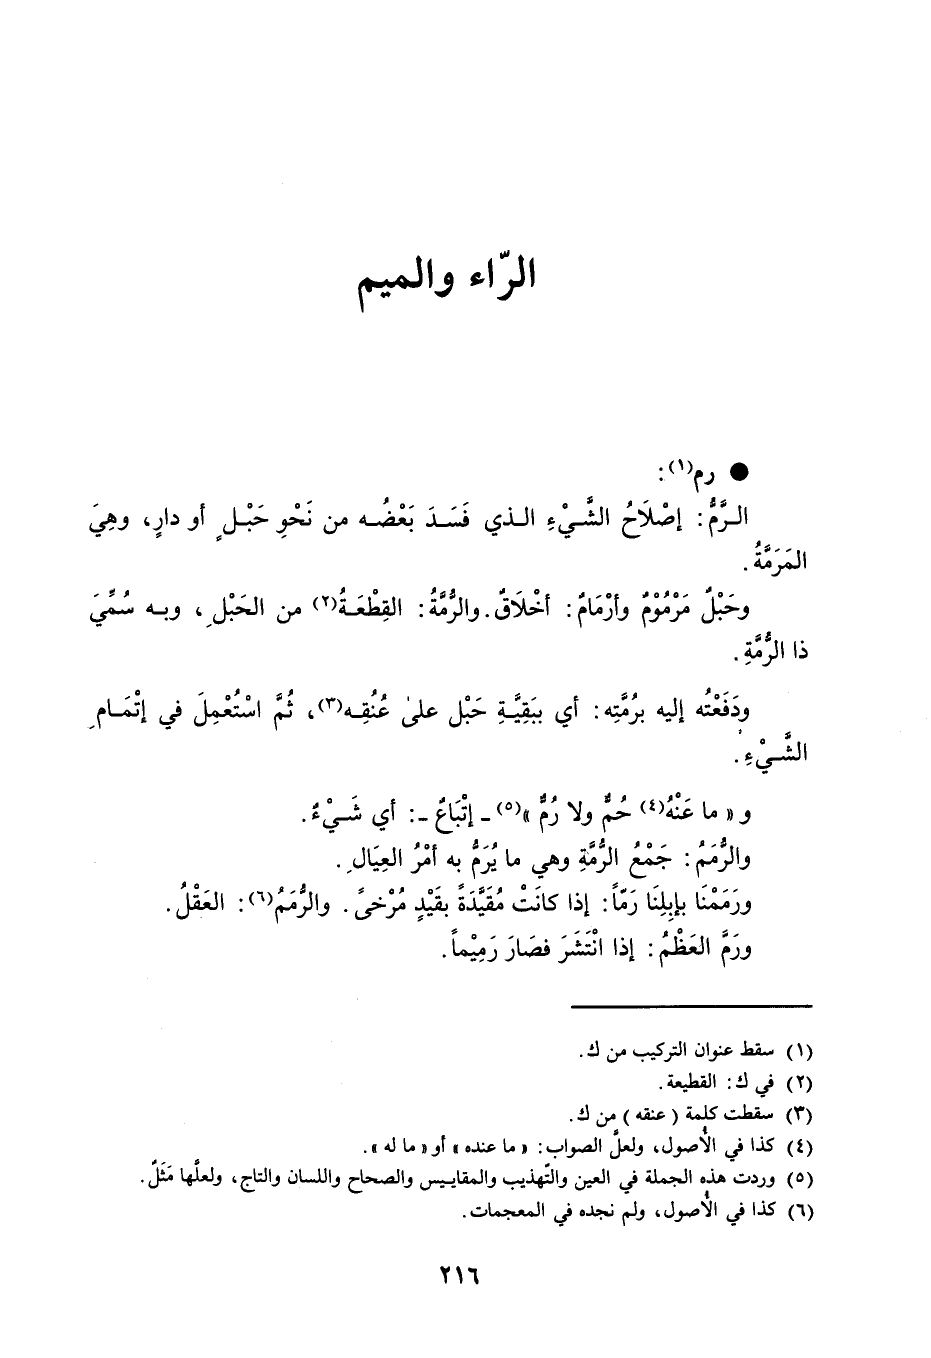 الرّاء والميم
● رم(١):
الرَّمُّ: إصْلَاحُ الشَّيْءِ الذي فَسَدَ بَعْضُه من نَحْوِ حَبْلٍ أو دارٍ، وهِيَ
المَرَمَّةُ.
وحَبْلٌ مَرْمُوْمٌ وأرْمَامٌ: أخْلَاقٌ. والرُّمَّةُ: القِطْعَةُ(٢) من الحَبْلِ، وبه سُمِّيَ
ذا الرُّمَّةِ.
ودَفَعْتُه إليه بِرُمَّتِه: أي ببَقِيَّةِ حَبْل على عُنُقِه(٣)، ثُمَّ اسْتُعْمِلَ في إتْمَامِ
الشَّيْءِ.
و « ما عَنْهُ(٤) حُمٌّ ولا رُمٌّ »(٥) ـ إتْبَاعٌ ـ: أي شَيْءٌ.
والرُّمَمُ: جَمْعُ الرُّمَّةِ وهي ما يُرَمُّ به أمْرُ العِيَالِ.
ورَمَمْنَا بإبِلِنَا رَمّاً: إذا كانَتْ مُقَيَّدَةً بقَيْدٍ مُرْخىً. والرُّمَمُ(٦): العَقْلُ.
ورَمَّ العَظْمُ: إذا انْتَشَرَ فصَارَ رَمِيْماً.
(١) سقط عنوان التركيب من ك.
(٢) في ك: القطيعة.
(٣) سقطت كلمة (عنقه) من ك.
(٤) كذا في الأُصول، ولعلَّ الصواب: « ما عنده » أو « ما له ».
(٥) وردت هذه الجملة في العين والتّهذيب والمقاييس والصحاح واللسان والتاج، ولعلَّها مَثَلٌ.
(٦) كذا في الأُصول، ولم نجده في المعجمات.
٢١٦